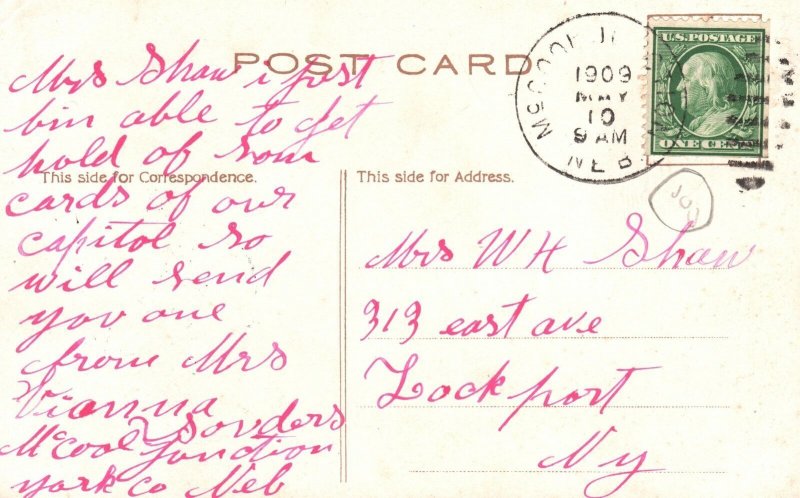 POST CARD
Mrs Shaw i jost
bin able to get
hold of som
This side for Correspondence.
cards of our
capitol so
will send
you one
from Mrs
Vianna
Sonders
McCool Junction
York Co Neb
This side for Address.
Mrs W H Shaw
313 east ave
Lockport
Ny
McCOOL JU
1909
MAY
10
9 AM
NEBR
U.S. POSTAGE
ONE CENT